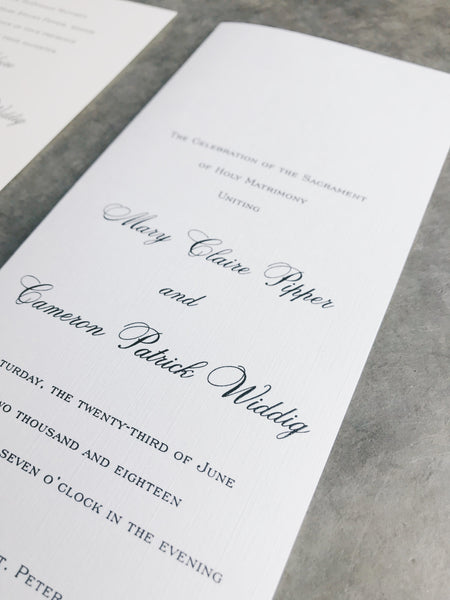 The Celebration of the Sacrament
of Holy Matrimony
Uniting
Mary Claire Pipper
and
Cameron Patrick Widdig
aturday, the twenty-third of June
wo thousand and eighteen
seven o'clock in the evening
t. Peter